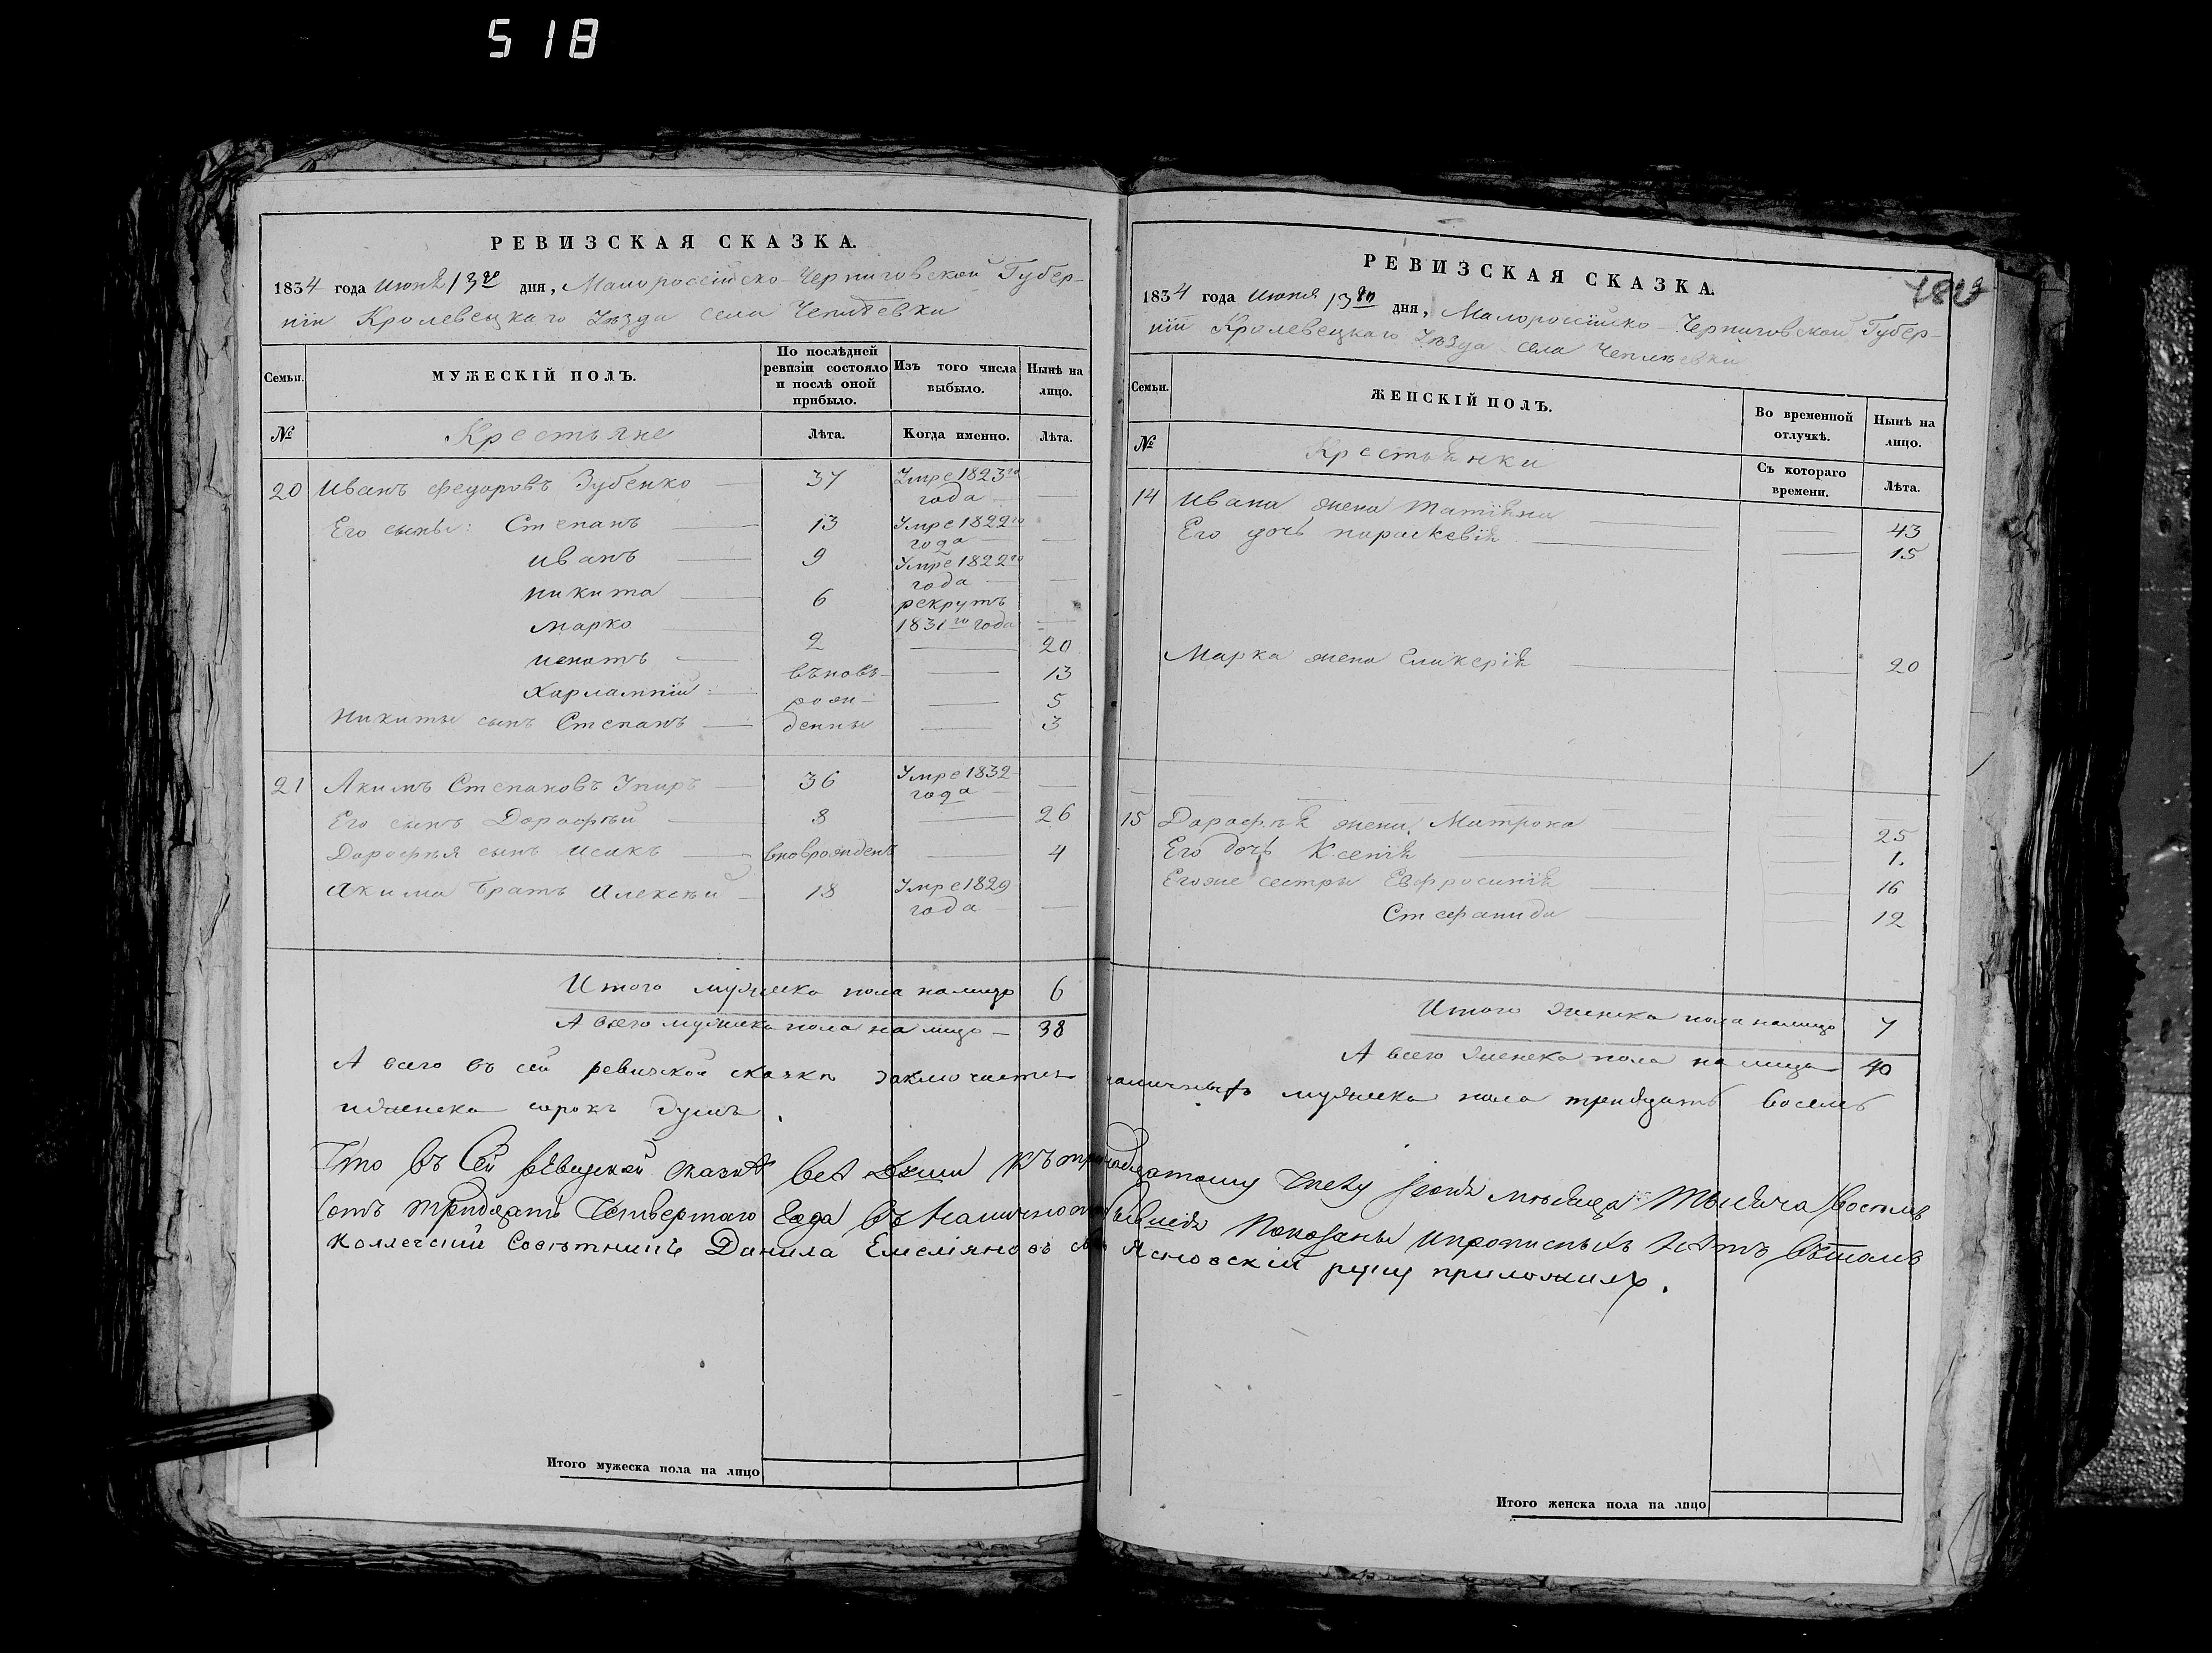 518
РЕВИЗСКАЯ СКАЗКА.
1834 года Июня 13го дня, Малороссійско-Черниговской Губер-
ніи Кролевецкаго Уѣзда села Чеплѣевки
Семьи.
МУЖЕСКІЙ ПОЛЪ.
По послѣдней ревизіи состояло и послѣ оной прибыло.
Изъ того числа выбыло.
Нынѣ на лицо.
№
Крестьяне
Лѣта.
Когда именно.
Лѣта.
20 Иванъ Федоровъ Зубенко — 37 Умре 1823го года —
Его сыны: Степанъ — 13 Умре 1822го года —
Иванъ — 9 Умре 1822го года —
Никита — 6 рекрутъ 1831го года —
Марко — 2 — 20
Игнатъ — вѣновь — 13
Харлампій — рож — 5
Никиты сынъ Степанъ — денны — 3
21 Акимъ Степановъ Упиръ — 36 Умре 1832 года —
Его сынъ Дорофѣй — 8 — 26
Дорофѣя сынъ Исакъ — вновьрожденъ — 4
Акима братъ Алексѣй — 18 Умре 1829 года —
Итого мужеска пола налицо 6
А всего мужеска пола на лицо — 38
РЕВИЗСКАЯ СКАЗКА.
1834 года Июня 13го дня, Малороссійско-Черниговской Губер-
ніи Кролевецкаго Уѣзда села Чеплѣевки
Семьи.
ЖЕНСКІЙ ПОЛЪ.
Во временной отлучкѣ.
Нынѣ на лицо.
№
Крестьянки
Съ котораго времени.
Лѣта.
14 Ивана жена Татіяна — 43
Его дочь Параскевія — 15
Марка жена Гликерія — 20
15 Дорофѣя жена Матрона 25
Его дочь Ксенія — 1.
Егоже сестры Евфросинія — 16
Стефанида — 12
Итого женска пола налицо 7
А всего женска пола на лицо 40
А всего въ сей ревизской сказкѣ заключается наличныхъ мужеска пола тридцать восемь
иженска сорокъ душъ.
Что въ Сей ревизской сказкѣ всѣ души къ тринадцатому числу Іюня мѣсяца Тысяча восемь
сотъ тридцать Четвертаго Года въ наличности бывшія Показаны ипрописныхъ нѣтъ вътомъ
Коллежский Советникъ Данила Емеліяновъ Ясновскій руку приложилъ.
Итого мужеска пола на лицо
Итого женска пола на лицо